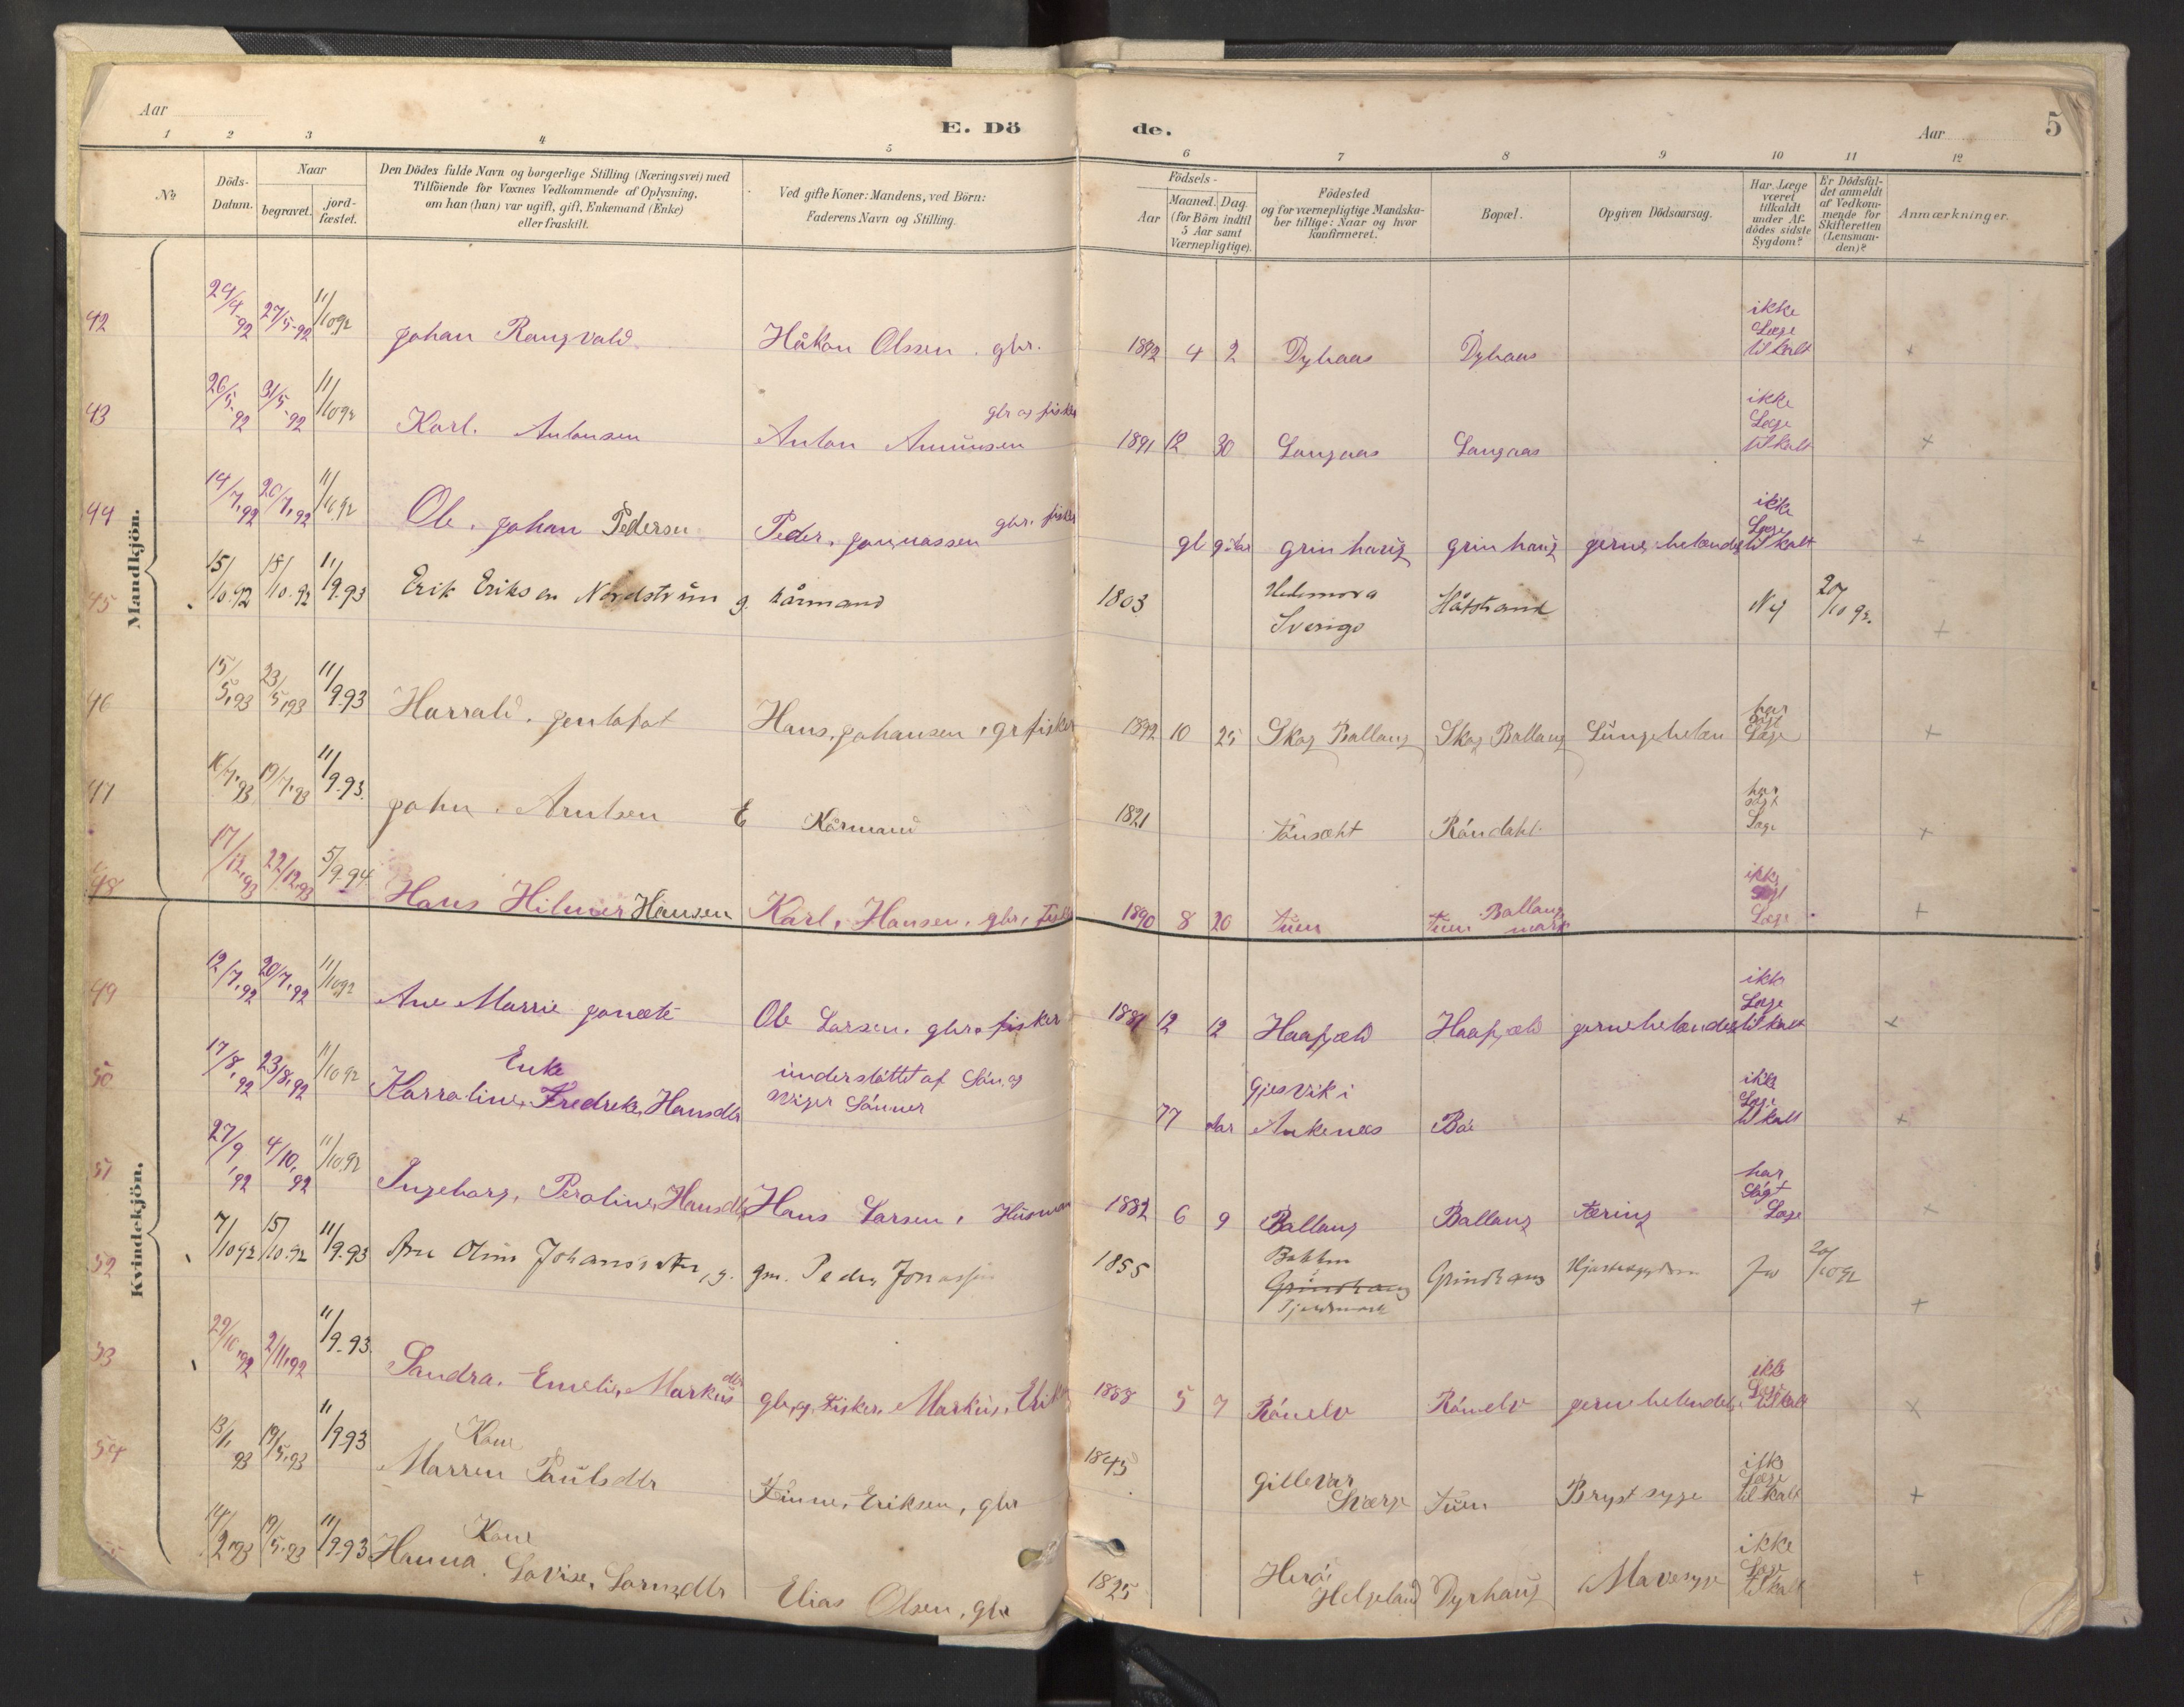 Aar
E. Dö de.
Aar
5
1 2 3 4 5 6 7 8 9 10 11 12
No
Döds-Datum.
Naar
begravet.
jord-fæstet.
Den Dödes fulde Navn og borgerlige Stilling (Næringsvei) med
Tilföiende for Voxnes Vedkommende af Oplysning,
om han (hun) var ugift, gift, Enkemand (Enke)
eller fraskilt.
Ved gifte Koner: Mandens, ved Börn:
Faderens Navn og Stilling.
Födsels-
Aar
Maaned. Dag.
(for Börn indtil
5 Aar samt
Værnepligtige).
Födested
og for værnepligtige Mandska-
ber tillige: Naar og hvor
konfirmeret.
Bopæl.
Opgiven Dödsaarsag.
Har Læge
været
tilkaldt
under Af-
dödes sidste
Sygdom?
Er Dödsfal-
det anmeldt
af Vedkom-
mende for
Skifteretten
(Lensman-
den)?
Anmærkninger.
Mandkjön.
42 29/4-92 27/5-92 11/10 92 Johan Rangvald Håkon Olssen. gbr. 1892 4 2 Dyhaas Dyhaas ikke Læge tilkalt +
43 26/5-92 31/5-92 11/10 92 Karl. Antonsen Anton Amunsen gbr og fisker 1891 12 30 Langaas Langaas ikke Læge tilkalt +
44 14/7,92 20/7,92 11/10 92 Ole. Johan Pedersen Peder. Jonnassen gbr. fisker gl 9 Aar grinhaug grinhaug ikke Læge tilkalt +
45 15/10.92 15/10.92 11/9-93 Erik Eriksen Nordström g. kårmand 1803 Hedemora Sverige Håfstrand Nej 20/10 92. +
46 15/5,93 23/5,93 11/9-93 Harrald. Hans, Johansen, gr fisker 1892 10 25 Skog Ballang Skog Ballang har søgt Læge +
47 16/7,93 19/7,93 11/9-93. John. Arntsen E Kårmand 1821 Tönsæht Råndahl har søgt Læge +
48 17/12,93 22/12,93 5/9-94 Hans Hilmer Hansen Karl, Hansen, gbr, Fisker 1890 8 20 Tuen Tuen Ballang mark ikke søgt Læge +
Kvindekjön.
49 12/7,92 20/7,92 11/10 92 Ane Marrie Jonette Ole Larsen, gbr. fisker 1881 12 12 Haafjæld Haafjæld ikke Læge tilkalt +
50 17/8,92 23/8,92 11/10 92 Enke Karroline, Fredrike, Hansdtr understöttet af Sön og Sönner 77 Aar Gjesvik i Ankenes Böe ikke Læge tilkalt +
51 27/9,92 4/10,92 11/10 92 Ingeborg, Peroline, Hansdtr Hans Larsen, Husman 1882 6 9 Ballang Ballang tæring har søgt Læge +
52 7/10 92 15/10.92 11/9-93 Johansdatter, g. gm. Peder Jonassen 1855 Grindhaug Grindhaug Hjertesygdom Ja 20/10 92 +
53 29/10,92 2/11,92 11/9-93. Sandra. Emelie, Markus dtr gbr, og, Fisker, Markus, Erik 1888 5 7 Rånelv Rånelv ikke Læge tilkalt +
54 13/1,93 19/5,93 11/9-93 Kone Marren Paulsdtr Finne, Eriksen, gbr 1843 Gillevar Sverge Tuen Brystsyge ikke Læge tilkalt +
14/2,93 19/5,93 11/9-93 Kone Hanna. Lovise, Larsedtr Elias Olsen, gbr 1825 Herö Helgeland Dyrhaug Mavesyge ikke Læge tilkalt +